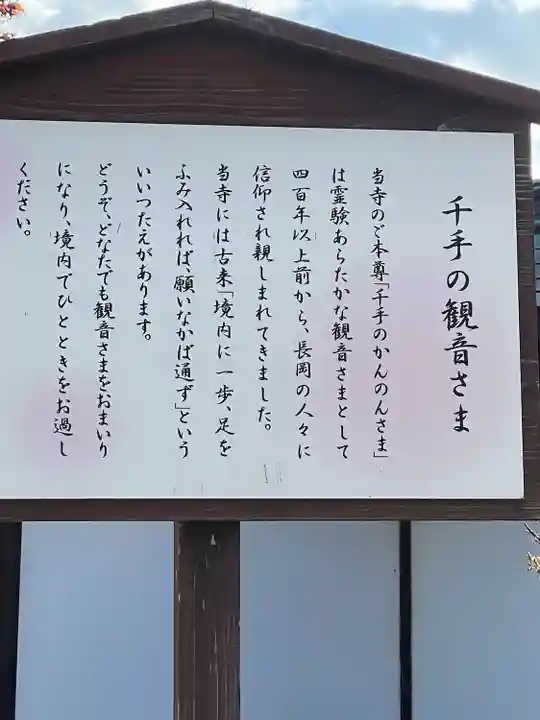 千手の観音さま
当寺のご本尊「千手のかんのんさま」
は霊験あらたかな観音さまとして
四百年以上前から、長岡の人々に
信仰され親しまれてきました。
当寺には古来「境内に一歩、足を
ふみ入れれば、願いなかば通ず」という
いいつたえがあります。
どうぞ、どなたでも観音さまをおまいり
になり、境内でひとときをお過し
ください。